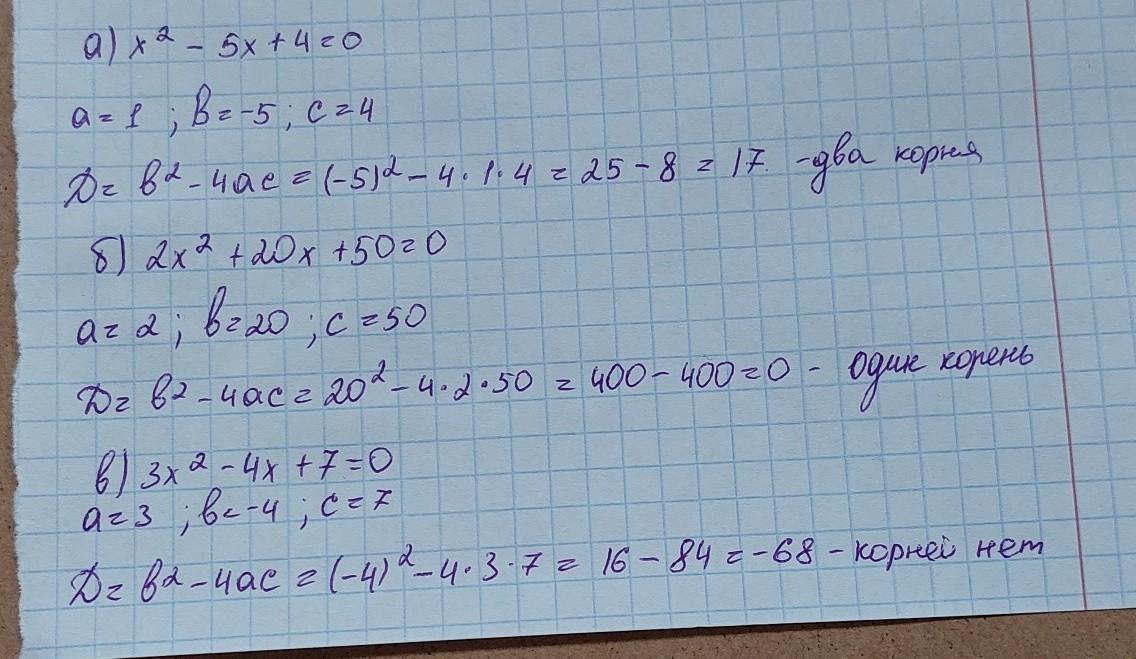 а) x² - 5x + 4 = 0
a = 1 ; b = -5 ; c = 4
D = b² - 4ac = (-5)² - 4 · 1 · 4 = 25 - 8 = 17 - два корня
б) 2x² + 20x + 50 = 0
a = 2 ; b = 20 ; c = 50
D = b² - 4ac = 20² - 4 · 2 · 50 = 400 - 400 = 0 - один корень
в) 3x² - 4x + 7 = 0
a = 3 ; b = -4 ; c = 7
D = b² - 4ac = (-4)² - 4 · 3 · 7 = 16 - 84 = -68 - корней нет